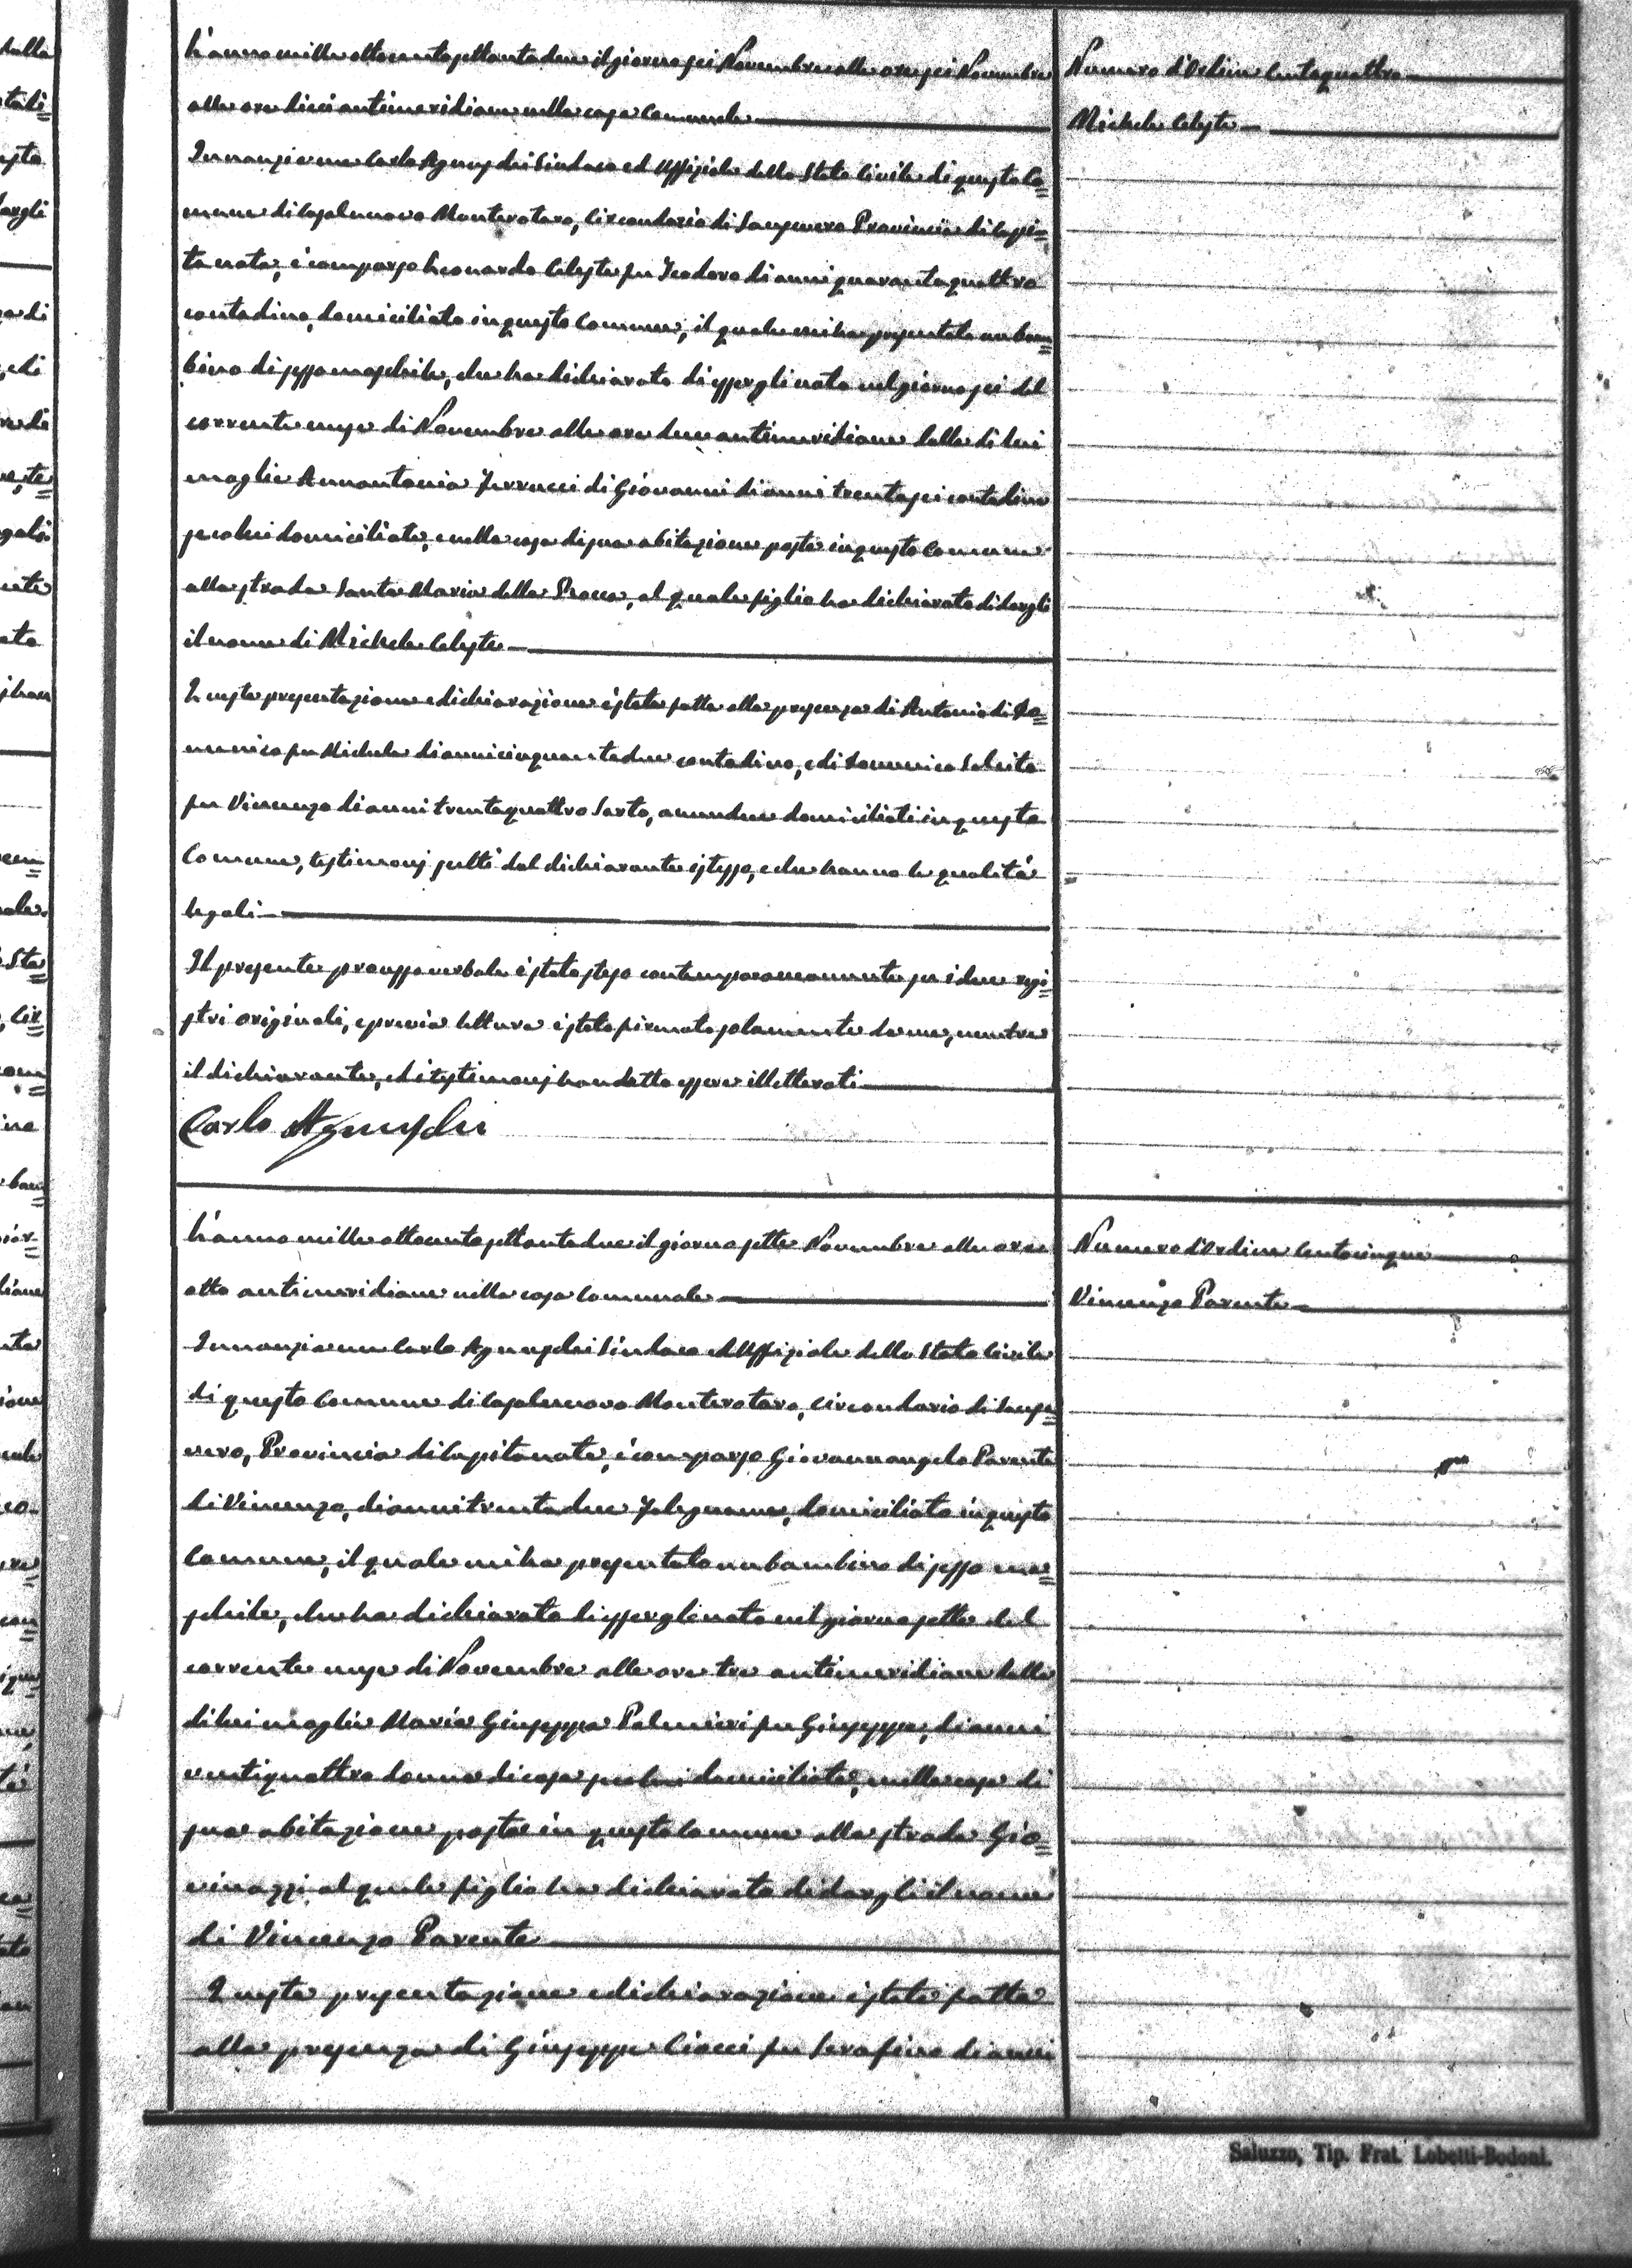 L'anno mille ottocento settantadue il giorno sei Novembre alle ore sei Novembre
alle ore dieci antimeridiane nella casa Comunale
Innanzi a me Carlo Agnusdei Sindaco ed Uffiziale dello Stato Civile di questo Co=
mune di Casalnuovo Monterotaro, Circondario di Sansevero Provincia di Capi=
tanata, è comparso Leonardo Celeste fu Teodoro di anni quarantaquattro
contadino, domiciliato in questo Comune, il quale mi ha presentato un bam=
bino di sesso maschile, che ha dichiarato di essergli nato nel giorno sei del
corrente mese di Novembre alle ore due antimeridiane dalla di lui
moglie Annantonia Ferrucci di Giovanni di anni trentasei contadina
seco lui domiciliata, e nella casa di sua abitazione posta in questo Comune
alla strada Santa Maria della Rocca, al quale figlio ha dichiarato di dargli
il nome di Michele Celeste
Questa presentazione e dichiarazione è stata fatta alla presenza di Antonio di Do=
menico fu Michele di anni cinquantadue contadino, e di Domenico Salcito
fu Vincenzo di anni trentaquattro Sarto, amendue domiciliati in questo
Comune, testimonj scelti dal dichiarante istesso, e che hanno le qualità
legali
Il presente processo verbale è stato steso contemporaneamente su i due regi=
stri originali, e previa lettura è stato firmato solamente da me, mentre
il dichiarante, ed i testimonj han detto essere illetterati
Carlo Agnusdei
L'anno mille ottocento settantadue il giorno sette Novembre alle ore
otto antimeridiane nella casa Comunale
Innanzi a me Carlo Agnusdei Sindaco ed Uffiziale dello Stato Civile
di questo Comune di Casalnuovo Monterotaro, Circondario di Sanse=
vero, Provincia di Capitanata, è comparso Giovannangelo Parente
di Vincenzo, di anni trentadue Falegname, domiciliato in questo
Comune, il quale mi ha presentato un bambino di sesso ma=
schile, che ha dichiarato di essergli nato nel giorno sette del
corrente mese di Novembre alle ore tre antimeridiane dalla
di lui moglie Maria Giuseppa Palmieri fu Giuseppe, di anni
ventiquattro donna di casa seco lui domiciliata, e nella casa di
sua abitazione posta in questo Comune alla strada Gio=
vinazzi al quale figlio ha dichiarato di dargli il nome
di Vincenzo Parente
Questa presentazione e dichiarazione è stata fatta
alla presenza di Giuseppe Ciacci fu Serafino di anni
Numero d'Ordine Centoquattro
Michele Celeste
Numero d'Ordine Centocinque
Vincenzo Parente
Saluzzo, Tip. Frat. Lobetti-Bodoni.